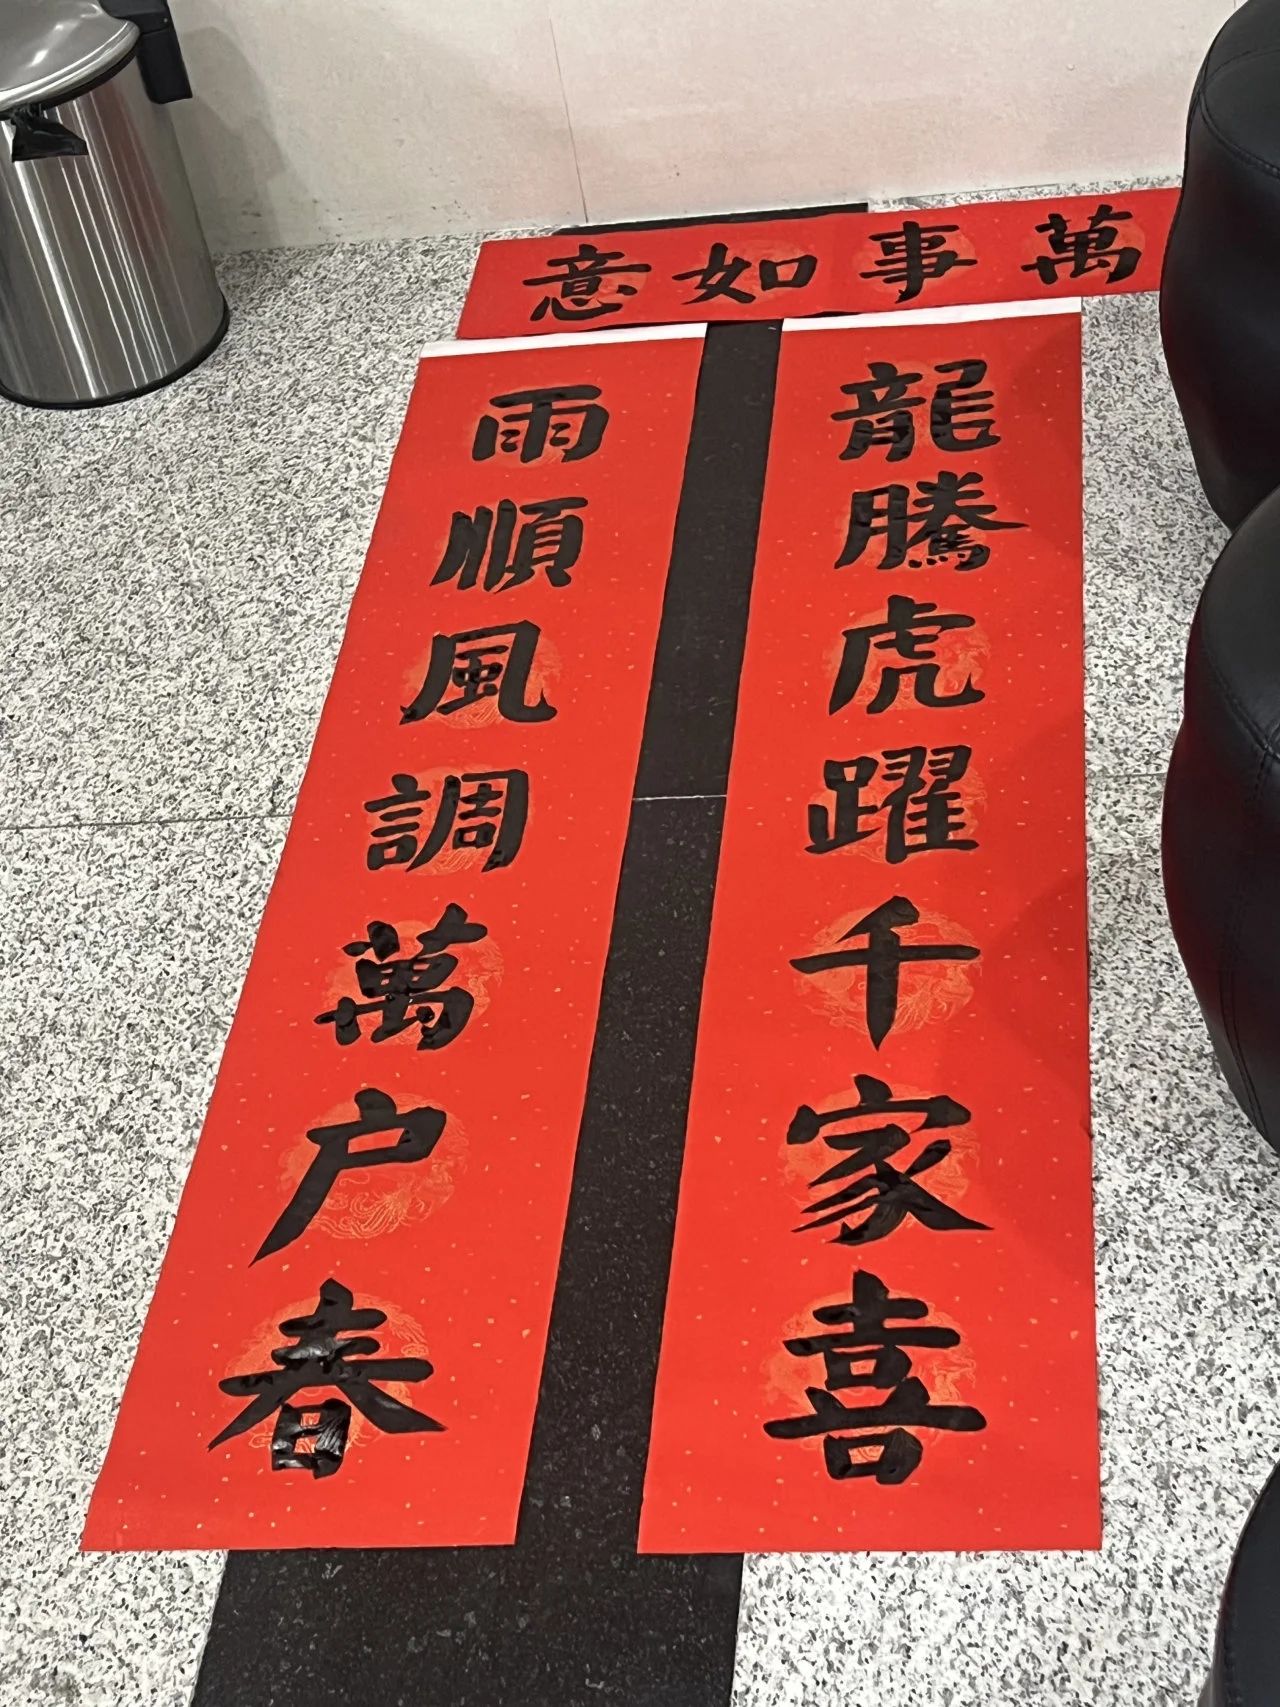 萬事如意
龍騰虎躍千家喜
雨順風調萬户春